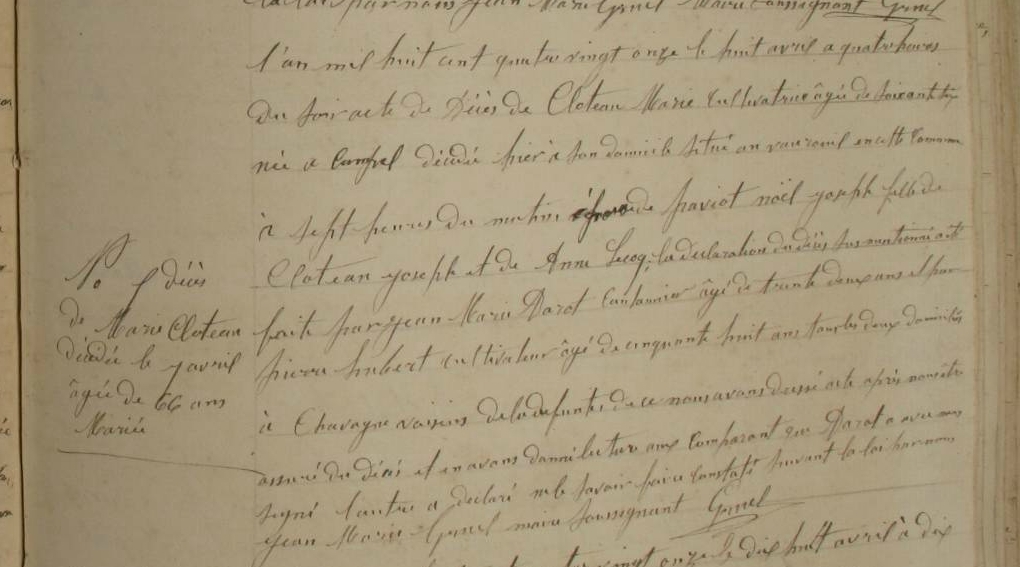 la loi par nous Jean Marie Grnel Maire soussignant Grnel
l'an mil huit cent quatre vingt onze le huit avril a quatre heures
du soir acte de Décès de Cloteau Marie cultivatrice âgée de soixante six
née a décédée hier à son domicile situé au vaurouil en cette Commune
à sept heures du matin épouse de paviot noël joseph fille de
Cloteau joseph et de Anne Lecoq, la déclaration du décès sus mentionné a été
faite par jean Marie Darot Cantonnier âgé de trente deux ans et par
pierre hubert cultivateur âgé de cinquante huit ans tous les deux domiciliés
à Chavagne voisins de la defunte de ce nous avons dressé acte après nous être
assuré du décès et en avons donné lecture aux Comparant que Darot a avec nous
signé l'autre a declaré ne le savoir faire constaté suivant la loi par nous
jean Marie Grnel maire soussignant Grnel
vingt onze le dix huit avril à dix
décès
de Marie Cloteau
décédée le 7 avril
âgée de 66 ans
Mariée